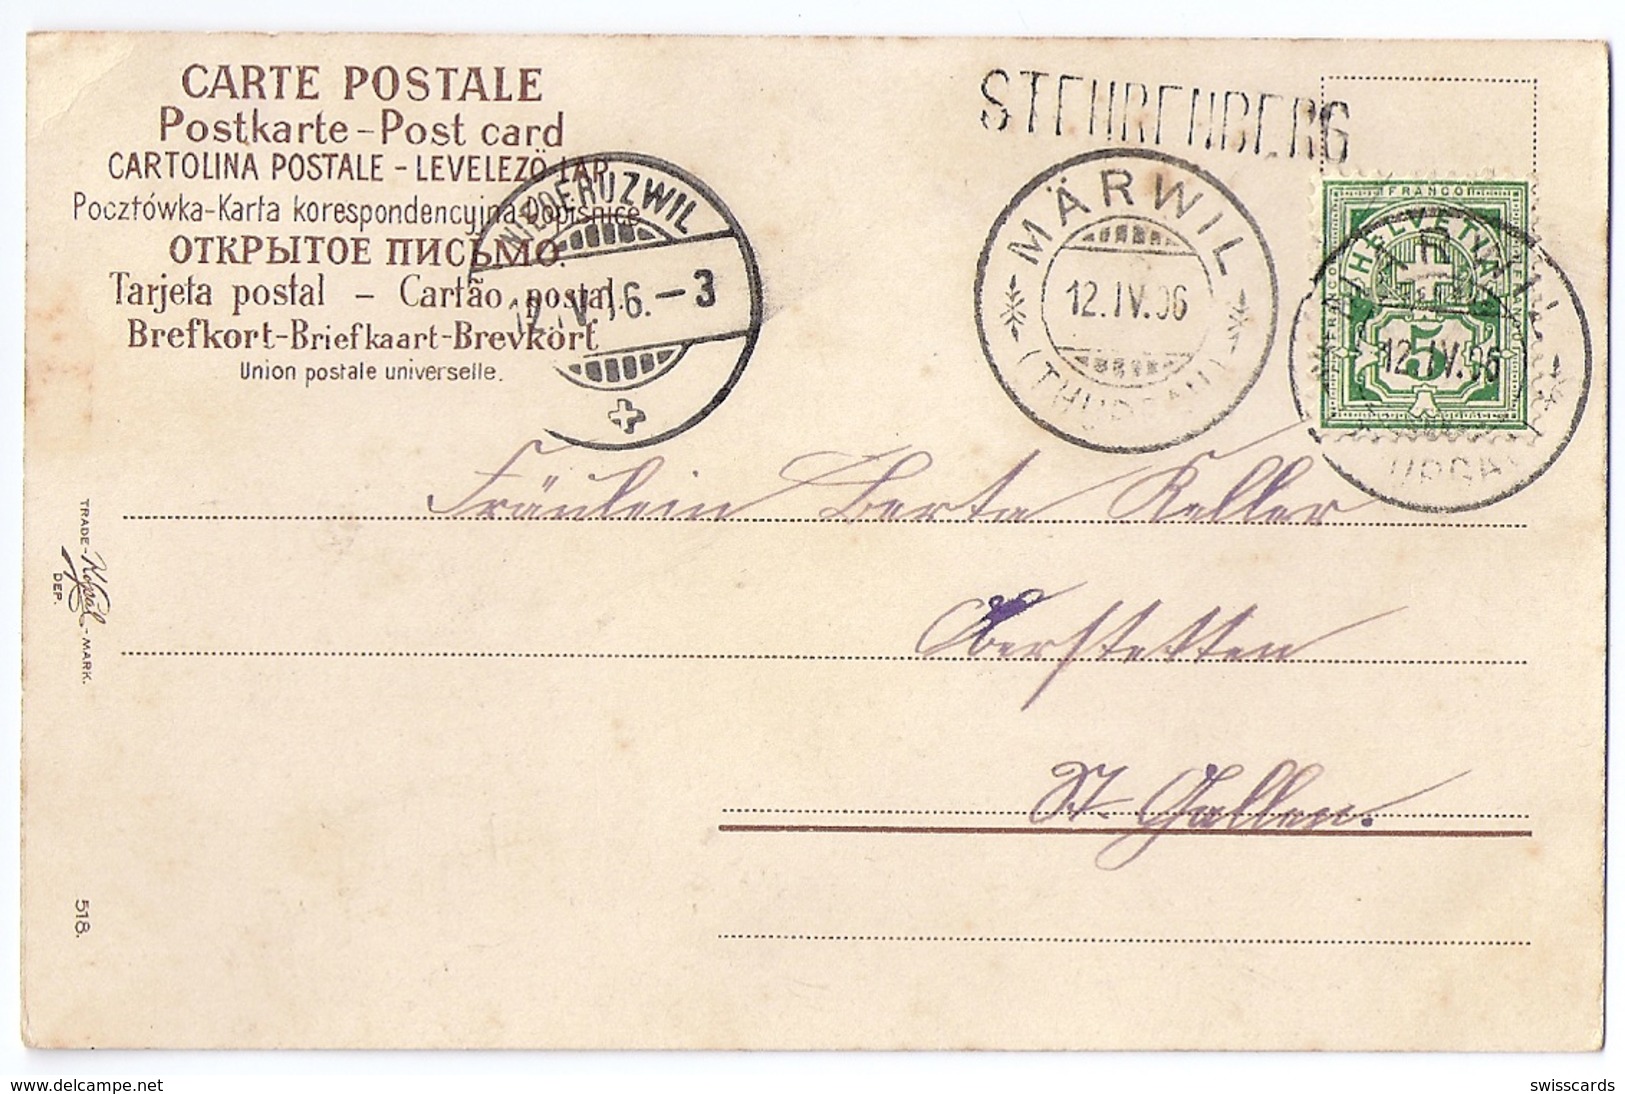 CARTE POSTALE
Postkarte - Post card
CARTOLINA POSTALE - LEVELEZÖ LAP
Pocztówka-Karta korespondencyjna-Dopisnice
ОТКРЫТОЕ ПИСЬМО.
Tarjeta postal – Cartão postal.
Brefkort-Briefkaart-Brevkort
Union postale universelle.
NIEDERUZWIL
12.IV.06.-3
STEHRENBERG
MÄRWIL
12.IV.06
(THURGAU)
FRANCO
HELVETIA
5
12.IV.06
Fräulein Berta Keller
Oberstetten
St. Gallen.
TRADE - Kopal - MARK.
DEP.
518.
delcampe.net
swisscards